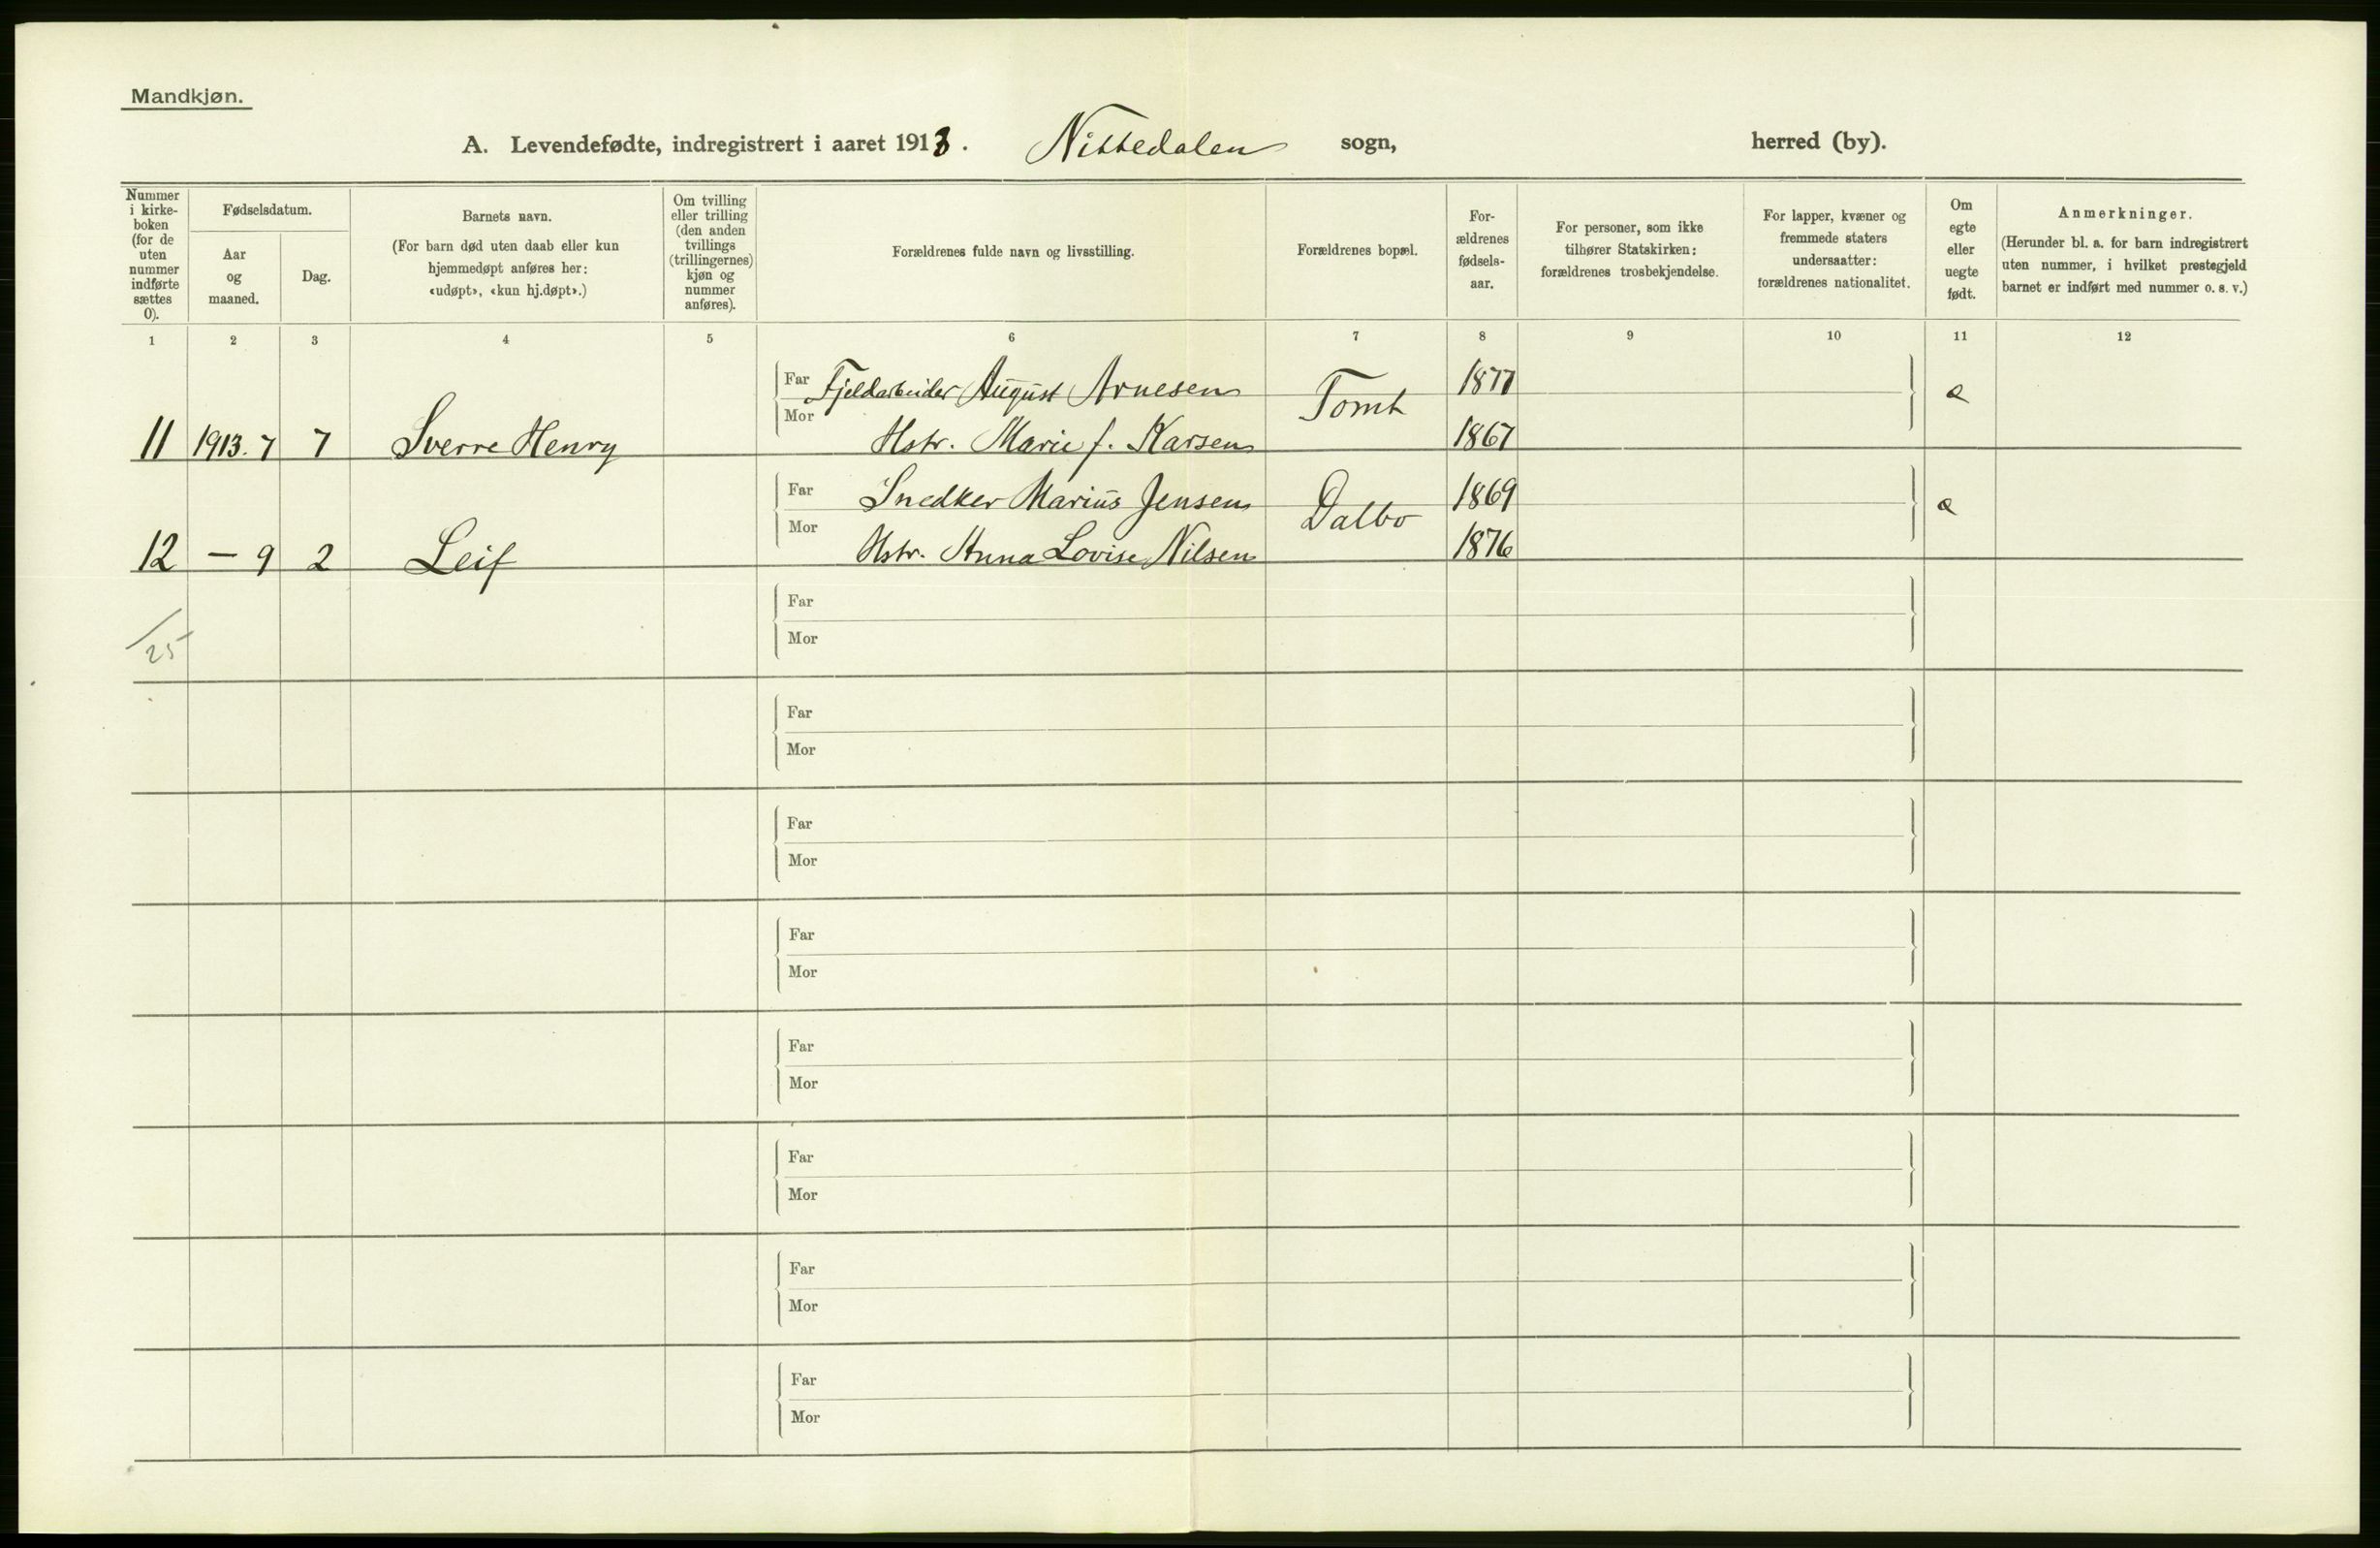 Mandkjøn.
A. Levendefødte, indregistrert i aaret 1913. Nittedalen sogn, herred (by).
Nummer i kirke-boken (for de uten nummer indførte sættes 0).
Fødselsdatum.
Aar og maaned.
Dag.
Barnets navn.
(For barn død uten daab eller kun
hjemmedøpt anføres her:
«udøpt», «kun hj.døpt».)
Om tvilling
eller trilling
(den anden
tvillings
(trillingernes)
kjøn og
nummer
anføres).
Forældrenes fulde navn og livsstilling.
Forældrenes bopæl.
For-
ældrenes
fødsels-
aar.
For personer, som ikke
tilhører Statskirken:
forældrenes trosbekjendelse.
For lapper, kvæner og
fremmede staters
undersaatter:
forældrenes nationalitet.
Om
egte
eller
uegte
født.
Anmerkninger.
(Herunder bl. a. for barn indregistrert
uten nummer, i hvilket prestegjeld
barnet er indført med nummer o. s. v.)
1 2 3 4 5 6 7 8 9 10 11 12
Far Fjeldarbeider August Arnesen Tomt 1877 e
11 1913. 7 7 Sverre Henry Mor Hstr. Marie f. Karsen 1867
Far Snedker Marius Jensen Dalbo 1869 e
12 — 9 2 Leif Mor Hstr. Anna Lovise Nilsen 1876
Far
Mor
25
Far
Mor
Far
Mor
Far
Mor
Far
Mor
Far
Mor
Far
Mor
Far
Mor